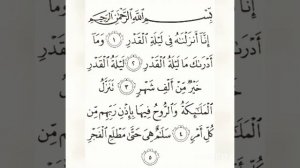 بِسْمِ اللَّهِ الرَّحْمَٰنِ الرَّحِيمِ
إِنَّا أَنزَلْنَاهُ فِي لَيْلَةِ الْقَدْرِ ١ وَمَا
أَدْرَاكَ مَا لَيْلَةُ الْقَدْرِ ٢ لَيْلَةُ الْقَدْرِ
خَيْرٌ مِّنْ أَلْفِ شَهْرٍ ٣ تَنَزَّلُ
الْمَلَائِكَةُ وَالرُّوحُ فِيهَا بِإِذْنِ رَبِّهِم مِّن
كُلِّ أَمْرٍ ٤ سَلَامٌ هِيَ حَتَّىٰ مَطْلَعِ الْفَجْرِ
٥